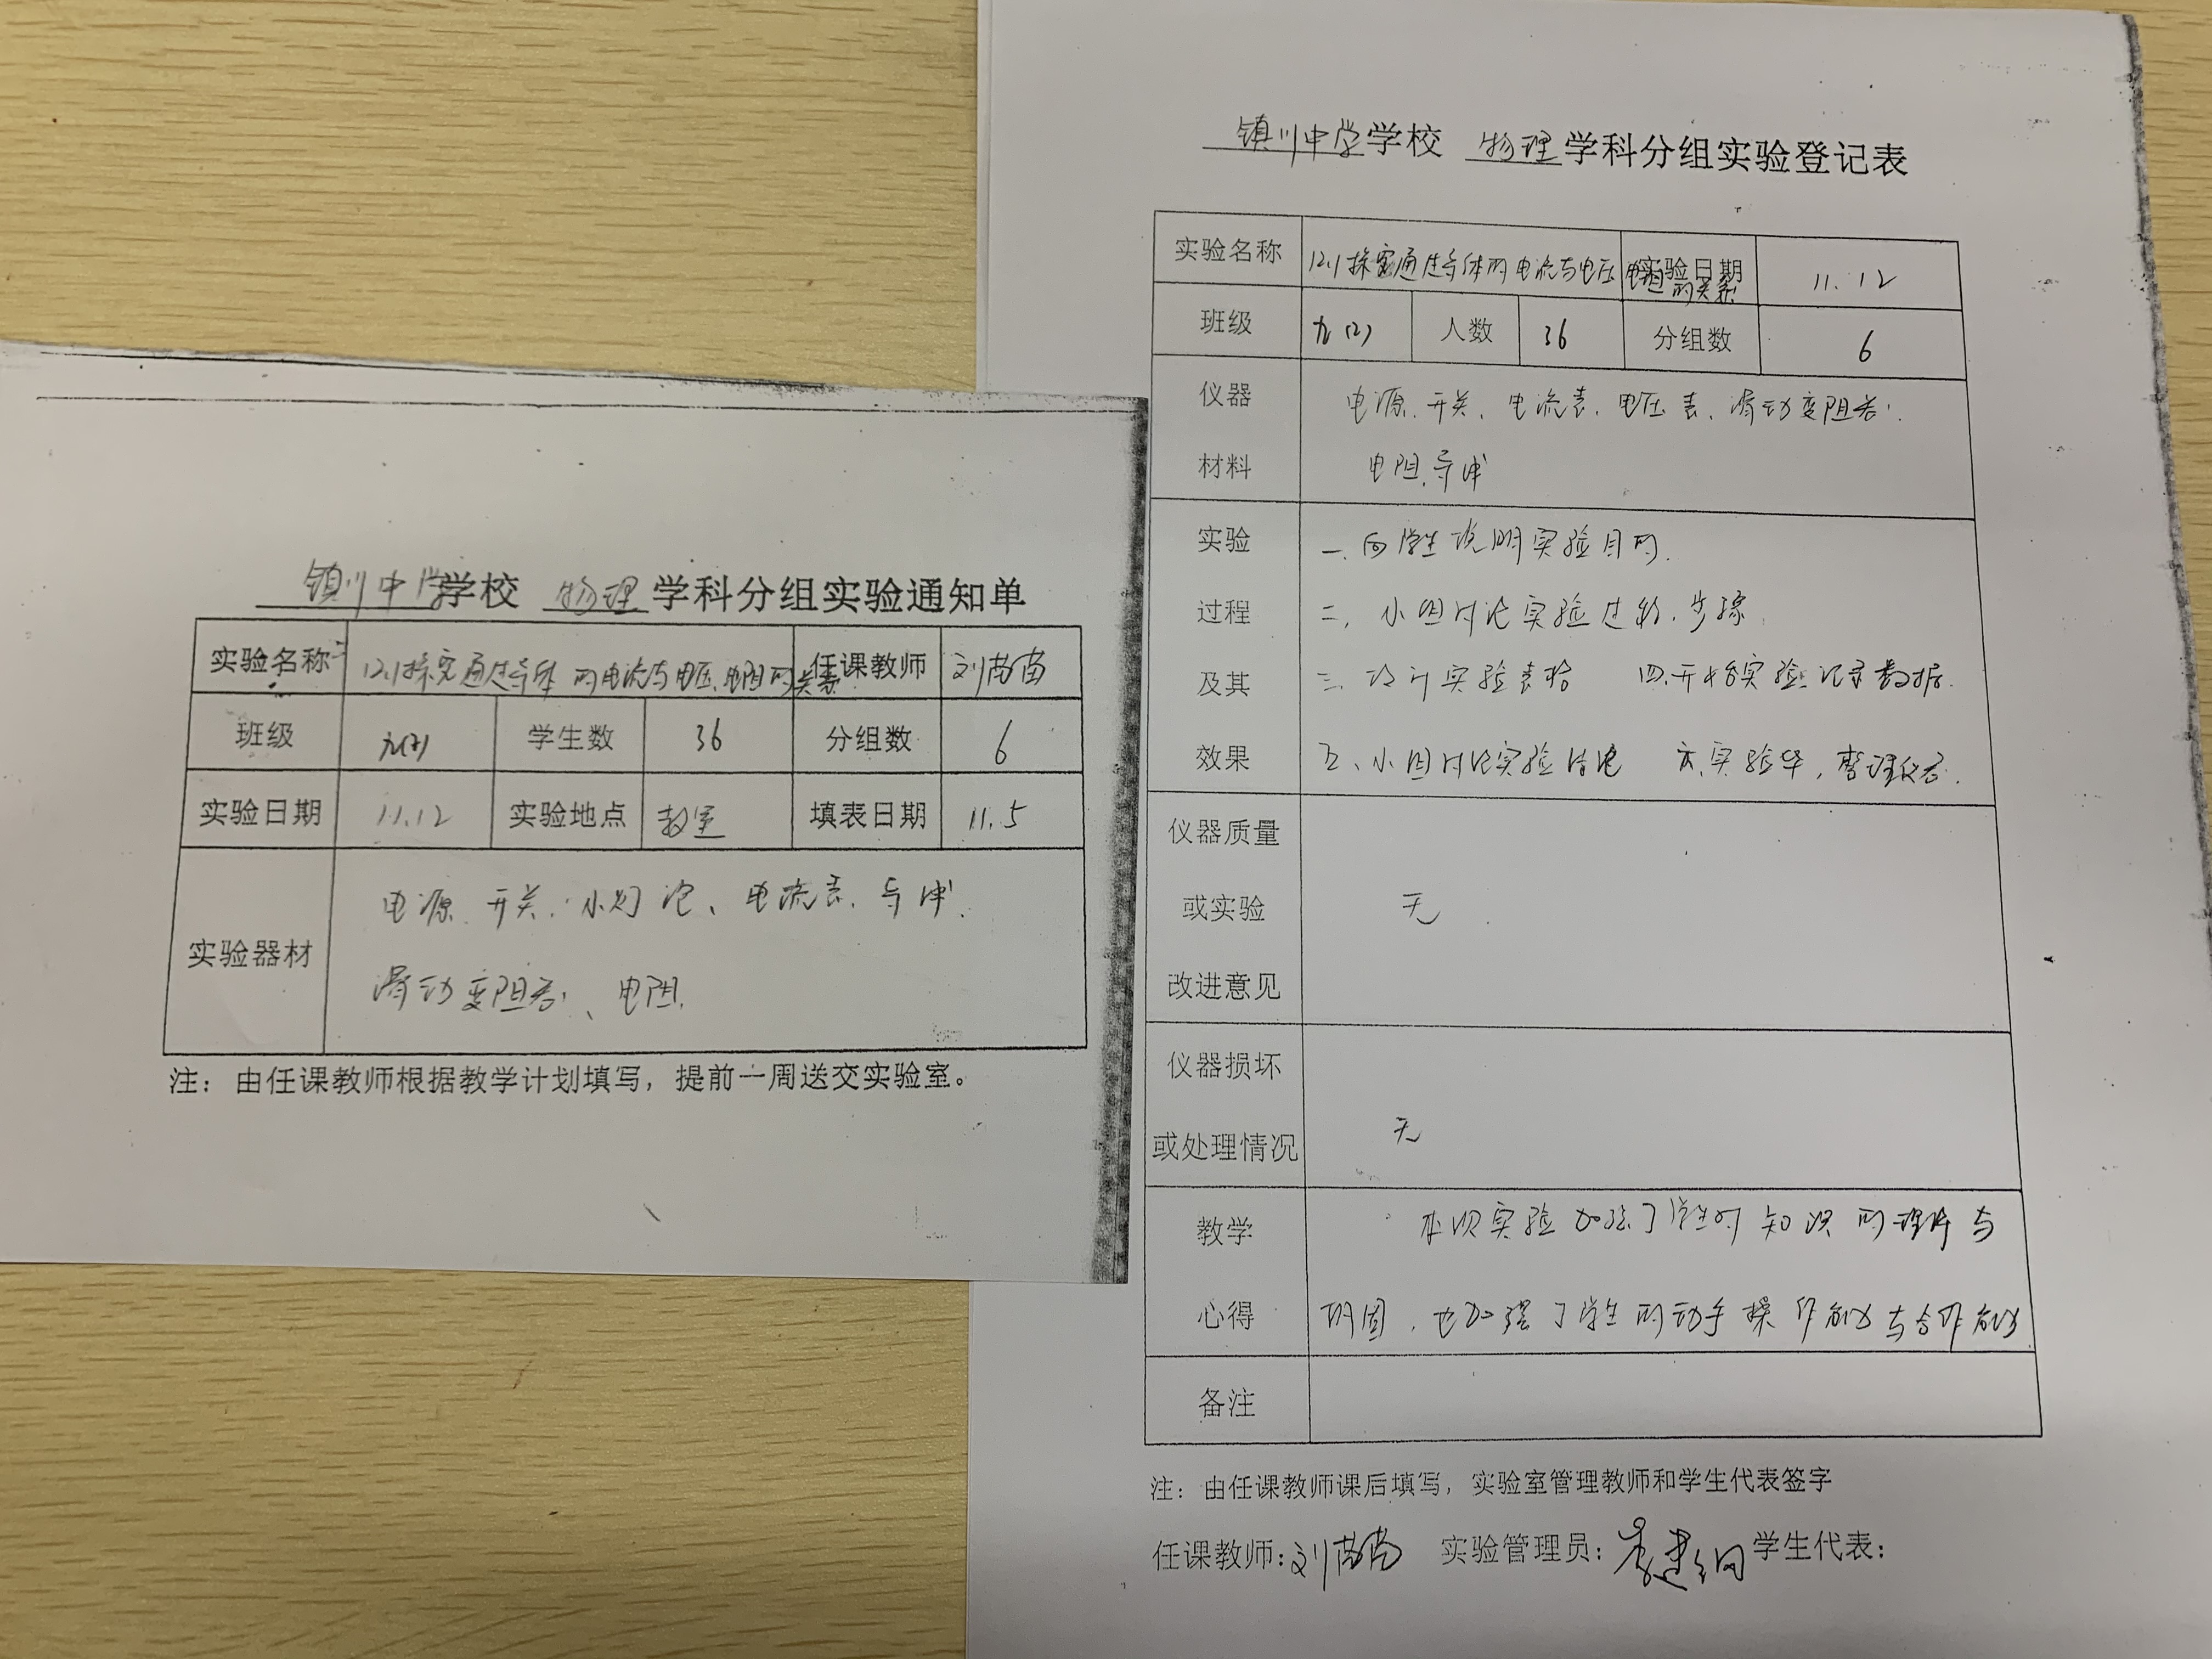 镇川中学学校 物理学科分组实验通知单
实验名称 12.1探究通过导体的电流与电压、电阻的关系 任课教师 刘苗苗
班级 九(2) 学生数 36 分组数 6
实验日期 11.12 实验地点 教室 填表日期 11.5
实验器材 电源、开关、小灯泡、电流表、导线、
滑动变阻器、电阻
注：由任课教师根据教学计划填写，提前一周送交实验室。
镇川中学学校 物理学科分组实验登记表
实验名称 12.1探究通过导体的电流与电压 电阻的关系 实验日期 11.12
班级 九(2) 人数 36 分组数 6
仪器 电源、开关、电流表、电压表、滑动变阻器、
材料 电阻、导线
实验 一、向学生说明实验目的.
过程 二、小组讨论实验过程、步骤
及其 三、设计实验表格 四、开始实验记录数据.
效果 五、小组讨论实验结论 六、实验毕，整理仪器.
仪器质量
或实验 无
改进意见
仪器损坏
或处理情况 无
教学 本次实验加强了学生对知识的理解与
心得 巩固，也加强了学生的动手操作能力与合作能力
备注
注：由任课教师课后填写，实验室管理教师和学生代表签字
任课教师：刘苗苗 实验管理员： 学生代表：